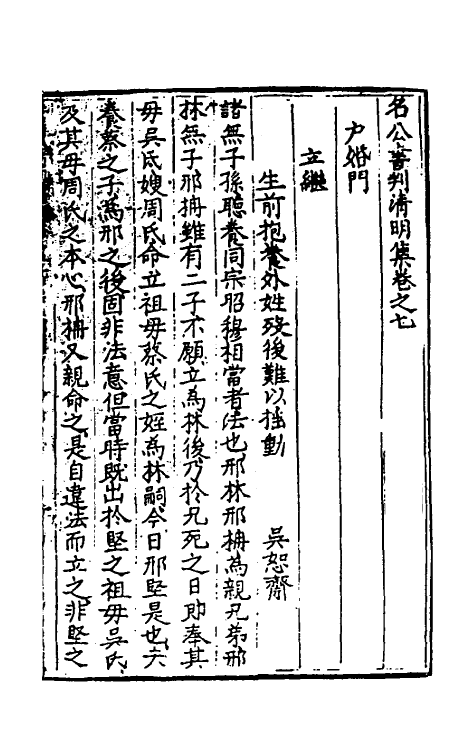 名公書判清明集卷之七
户婚門
立繼
生前抱養外姓殁後難以揺動 吳恕齋
諸無子孫聽養同宗昭穆相當者法也邢林邢柟為親兄弟邢
林無子邢柟雖有二子不願立為林後乃於兄死之日即奉其
母吳氏嫂周氏命立祖母蔡氏之姪為林嗣今日邢堅是也夫
養蔡之子為邢之後固非法意但當時既出於堅之祖母吳氏
及其母周氏之本心邢柟又親命之是自違法而立之非堅之